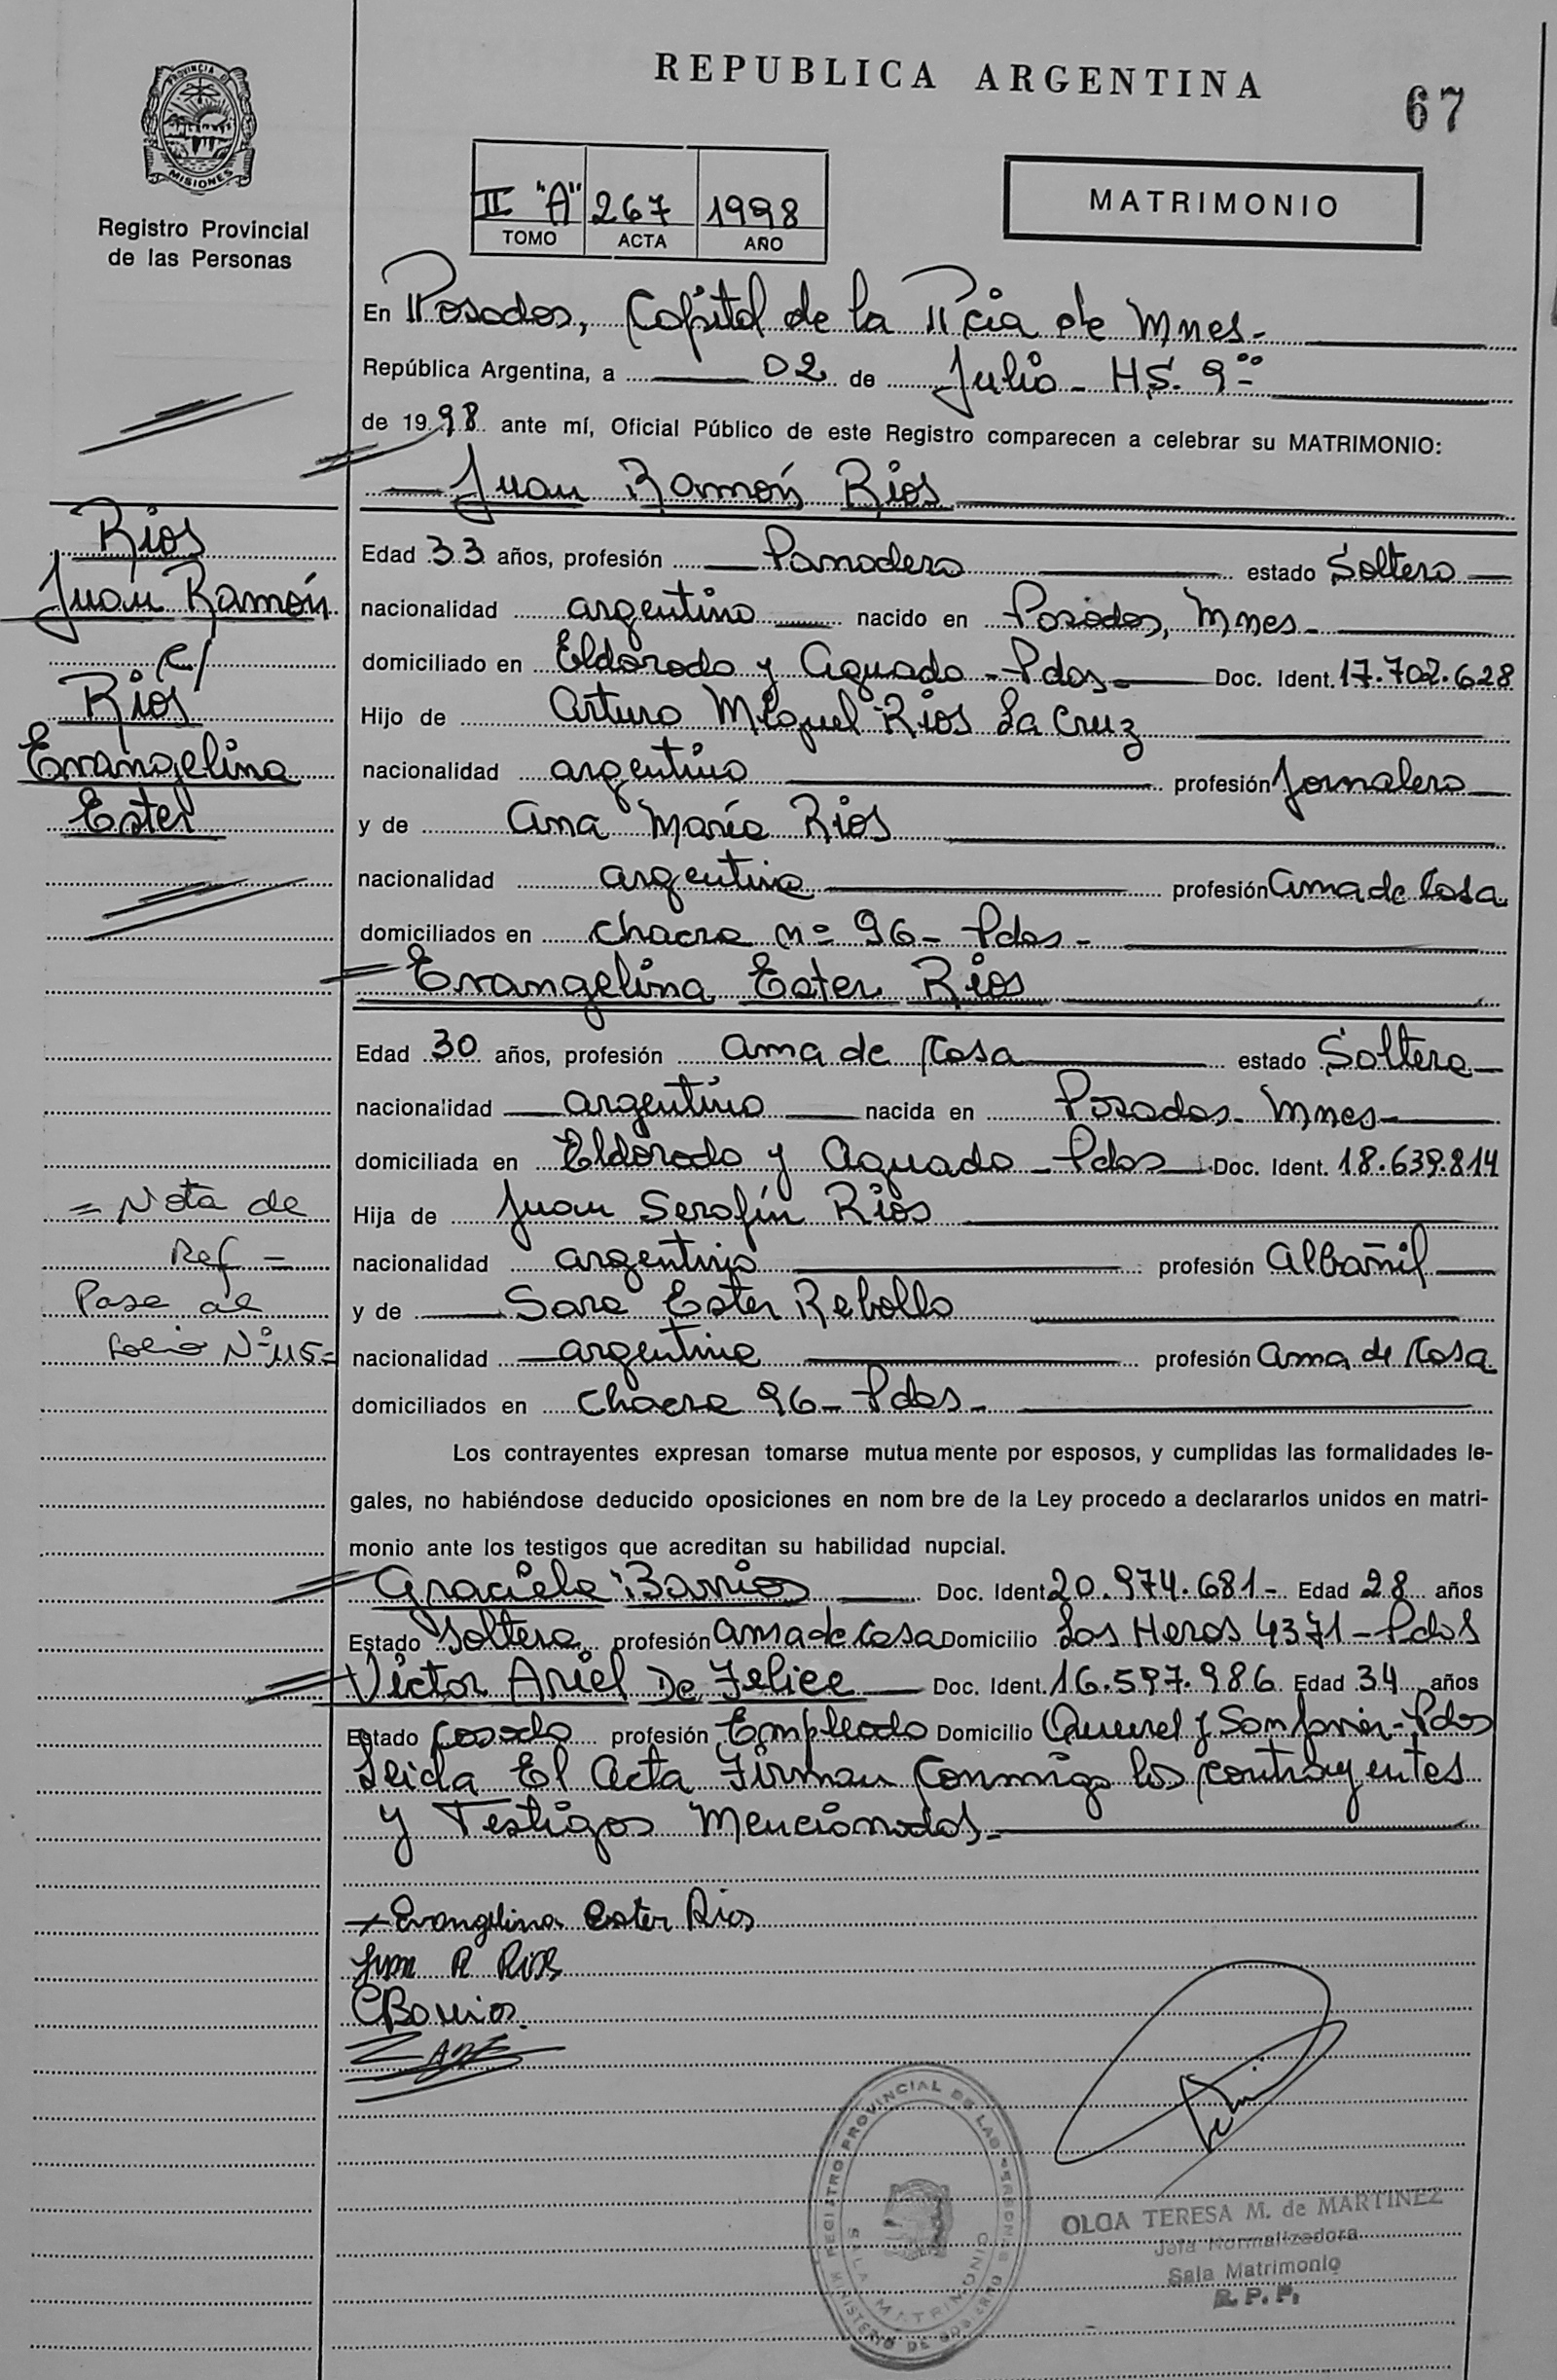 REPUBLICA ARGENTINA
67
PROVINCIA DE
MISIONES
Registro Provincial
de las Personas
II "A" 267 1998
TOMO ACTA AÑO
MATRIMONIO
En Posadas, Capital de la Pcia de Mnes.-
República Argentina, a 02 de Julio - HS. 9:00
de 1998 ante mí, Oficial Público de este Registro comparecen a celebrar su MATRIMONIO:
Juan Ramón Rios
Rios
Juan Ramón
c/
Rios
Evangelina
Ester
Edad 33 años, profesión Panadero estado Soltero
nacionalidad argentino nacido en Posadas, Mnes.
domiciliado en Eldorado y Aguado - Pdas Doc. Ident. 17.702.628
Hijo de Arturo Miguel Rios La Cruz
nacionalidad argentino profesión Jornalero
y de Ana María Rios
nacionalidad argentina profesión ama de Casa
domiciliados en chacra nº 96 - Pdas -
Evangelina Ester Rios
Edad 30 años, profesión ama de Casa estado Soltera
nacionalidad argentina nacida en Posadas - Mnes
domiciliada en Eldorado y Aguado - Pdas Doc. Ident. 18.639.814
Hija de Juan Serafín Rios
nacionalidad argentino profesión Albañil
y de Sara Ester Rebollo
nacionalidad argentina profesión ama de Casa
domiciliados en chacra 96 - Pdas -
= Nota de
Ref =
Pase al
folio Nº 115 =
Los contrayentes expresan tomarse mutua mente por esposos, y cumplidas las formalidades le-
gales, no habiéndose deducido oposiciones en nom bre de la Ley procedo a declararlos unidos en matri-
monio ante los testigos que acreditan su habilidad nupcial.
Graciela Barrios Doc. Ident 20.974.681 - Edad 28 años
Estado Soltera profesión ama de Casa Domicilio Las Heras 4371 - Pdas
Víctor Ariel De Felice Doc. Ident. 16.597.986 Edad 34 años
Estado casado profesión Empleado Domicilio y San Javier - Pdas
Leida El Acta Firman Conmigo los contrayentes
y Testigos Mencionados.
Evangelina Ester Rios
Juan R Rios
Barrios.
REGISTRO PROVINCIAL DE LAS PERSONAS
SALA MATRIMONIO
MINISTERIO DE GOBIERNO
OLGA TERESA M. de MARTINEZ
Jefa Normalizadora
Sala Matrimonio
R. P. P.